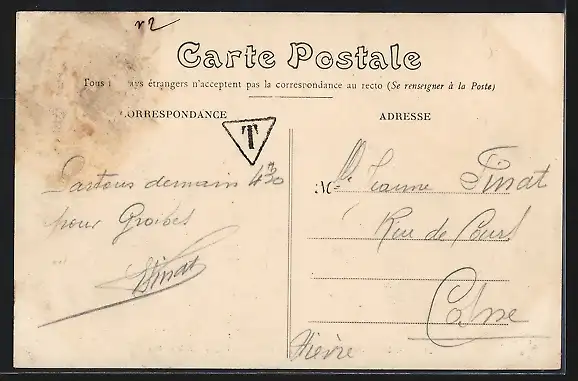 r2
Carte Postale
Tous les pays étrangers n'acceptent pas la correspondance au recto (Se renseigner à la Poste)
CORRESPONDANCE
ADRESSE
T
Partons demain 4h30
pour
Pinat
M Jeanne Pinat
Rue de
Cosne
Nièvre